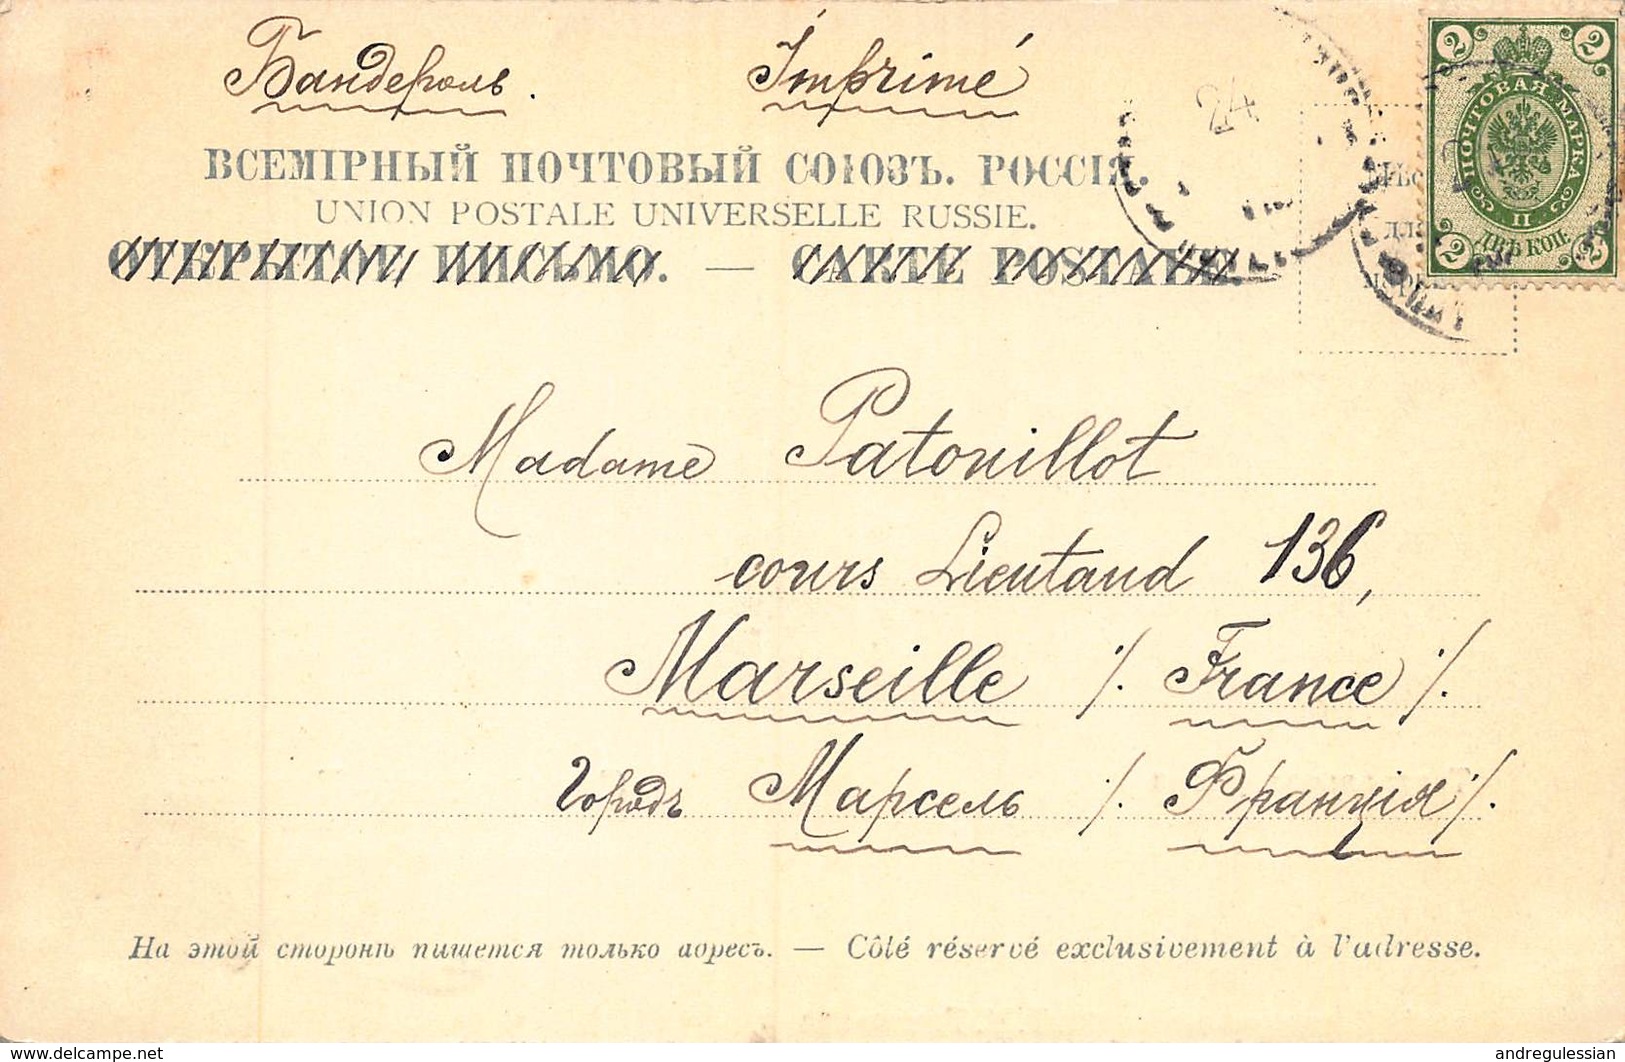 Бандероль. Imprimé
ВСЕМІРНЫЙ ПОЧТОВЫЙ СОЮЗЪ. РОССІЯ.
UNION POSTALE UNIVERSELLE RUSSIE.
ОТКРЫТОЕ ПИСЬМО. — CARTE POSTALE
24
2 2
ПОЧТОВАЯ МАРКА
II
ДВѢ КОП.
2 2
Madame Patouillot
cours Lieutaud 136,
Marseille /. France /.
Городъ Марсель /. Франція /.
На этой сторонѣ пишется только адресъ. — Côté réservé exclusivement à l'adresse.
www.delcampe.net
andregulessian